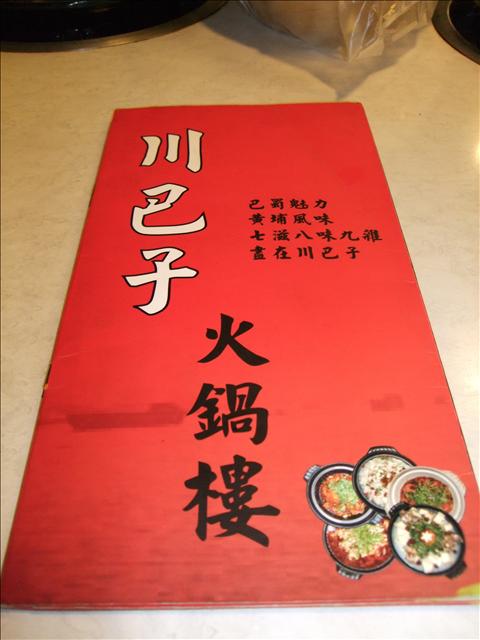 川巴子
火鍋樓
巴蜀魅力
黃埔風味
七滋八味九雜
盡在川巴子